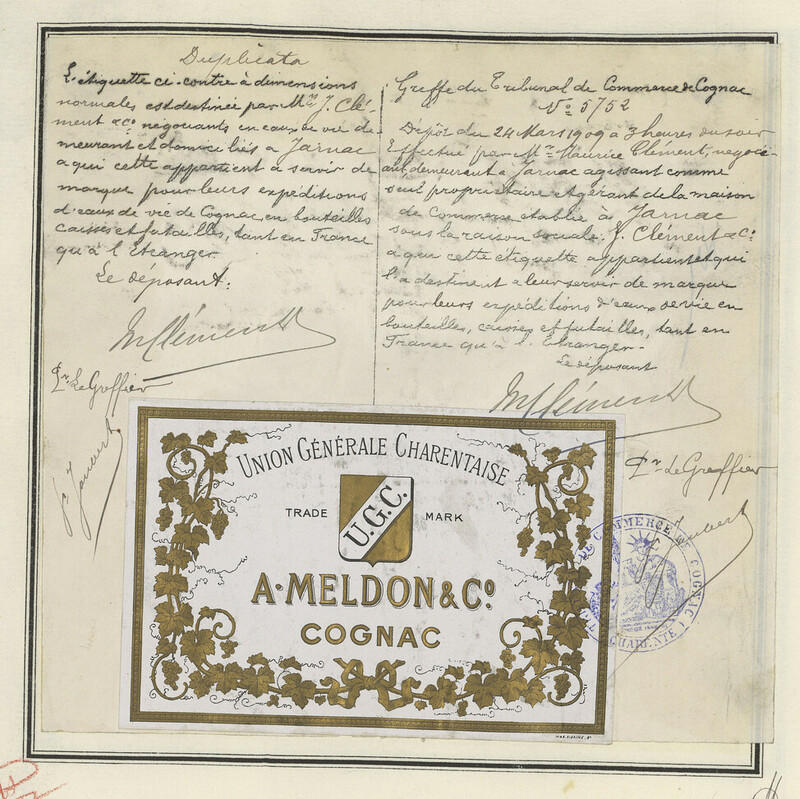 Duplicata
L'étiquette ci-contre à dimensions
normales est destinée par Mrs J. Clé-
ment & Co négociants en eaux de vie de-
meurant et domiciliés à Jarnac
a qui cette appartient à servir de
marque pour leurs expéditions
d'eaux de vie de Cognac, en bouteilles
caisses et futailles, tant en France
qu'à l'Etranger.
Le déposant:
M Clément
Pr. Le Greffier
Joubert
Greffe du Tribunal de Commerce de Cognac
No 5752
Dépôt du 24 Mars 1909 à 3 heures du soir
Effectué par Mr Maurice Clément, négoci-
ant demeurant a Jarnac agissant comme
seul propriétaire et gérant de la maison
de Commerce etablie à Jarnac
sous la raison sociale: J. Clément & Co
a qui cette étiquette appartient et qui
l'a destinent a leur servir de marque
pour leurs expéditions d'eaux de vie en
bouteilles, caisses et futailles, tant en
France qu'à l'Etranger.
Le déposant
M Clément
Pr. Le Greffier
Joubert
UNION GÉNÉRALE CHARENTAISE
TRADE MARK
U.G.C.
A. MELDON & Co
COGNAC
DE COMMERCE DE COGNAC
CHARENTE